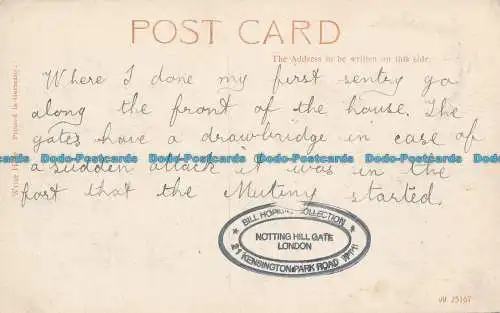 POST CARD
The Address to be written on this side.
Where I done my first sentry go
along the front of the house. The
gates have a drawbridge in case of
a sudden attack it was in the
fort that the Mutiny started.
Dodo-Postcards Dodo-Postcards Dodo-Postcards Dodo-Postcards Dodo-Postcards
Printed in Germany.
★ BILL HOPKINS COLLECTION ★
NOTTING HILL GATE
LONDON
21 KENSINGTON PARK ROAD W11